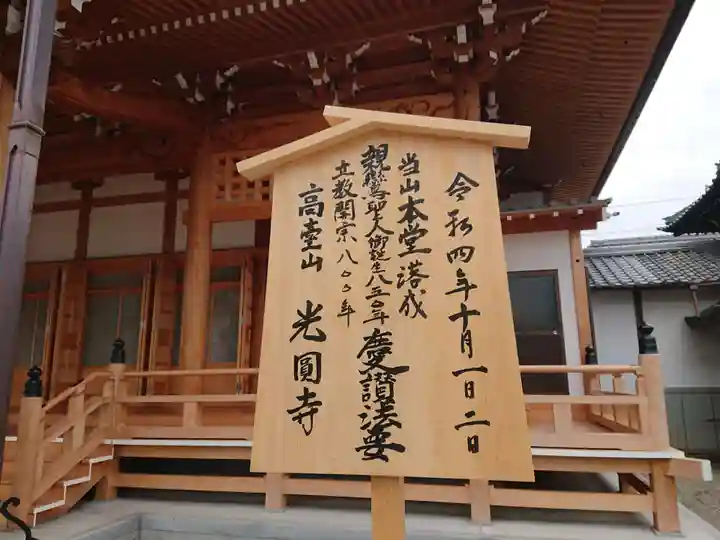 令和四年十月一日二日
当山本堂落成
親鸞聖人御誕生八五〇年
慶讃法要
立教開宗八〇〇年
高臺山 光圓寺